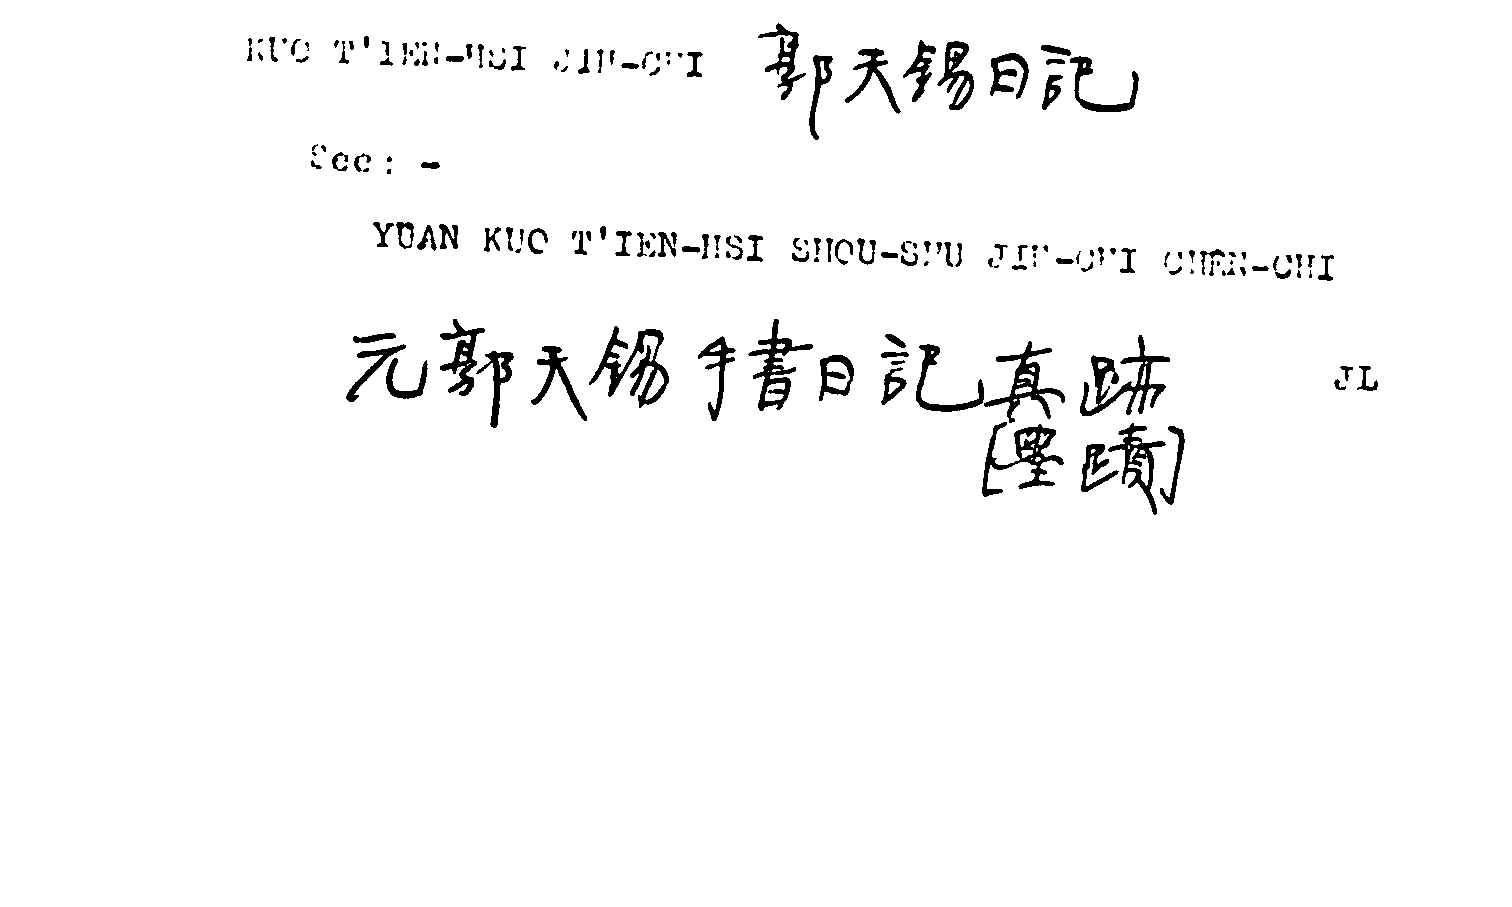 KUO T'IEN-HSI JIH-CHI 郭天錫日記
See: -
YÜAN KUO T'IEN-HSI SHOU-SHU JIH-CHI CHÊN-CHI
元郭天錫手書日記真跡 JL
[墨蹟]